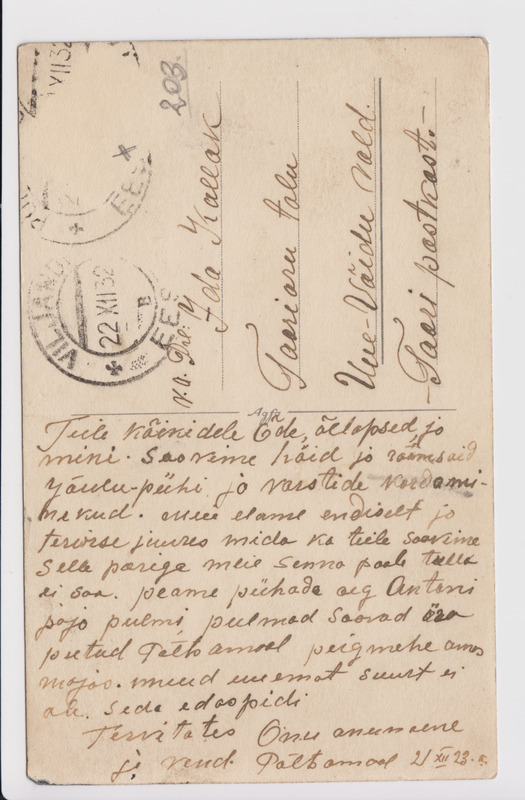 XII 32
EES
203.
VILJANDI
22 XII 32
B
EES
V. a. Prl: Ida Kallak
Taariaru talu
Uue-Võidu vald.
Taari postkast.-
Agfa
Teile kõikidele Õde, õelapsed ja
mini. Soovime häid ja rõõmsaid
Jõulu-pühi ja varstide
nekud. meie elame endiselt ja
tervise juures mida ka teile soovime
Selle päriga meie senna poole tulla
ei saa. peame pühade aeg Antoni
pojo pulmi pulmad saavad ära
peetud Põltsamaal peigmehe
majas. muud uuemat suurt ei
ole. Seda edaspidi
Tervitates Onu
ja vend. Põltsamaal 21 XII 23. a.